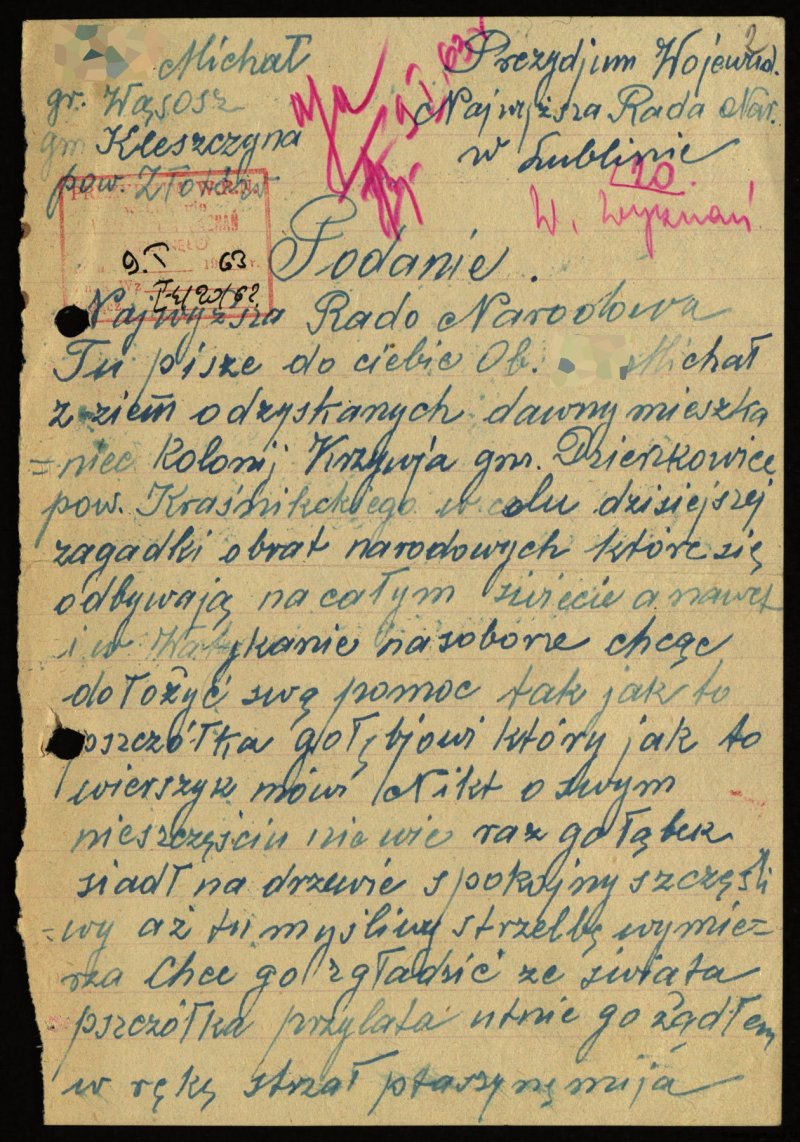 Michał
gr. Wąsosz
gm Kleszczyna
pow. Złotów
Prezydjum Wojewod.
Najwyższa Rada Nar.
w Lublinie
2
20
W. Wyznań
9.I 1963 r.
Podanie.
Najwyższa Rado Narodowa
Tu pisze do ciebie Ob. Michał
z ziem odzyskanych dawny mieszka
=niec Kolonij Krzywja gm. Dzierzkowice
pow. Kraśnikckiego w celu dzisiejszej
zagadki obrat narodowych które się
odbywają na całym świecie a nawet
i w Watykanie nasoborze chcąc
dołożyć swą pomoc tak jak to
pszczółka gołębjowi który jak to
wierszyk mówi Nikt o swym
nieszczęściu nie wie raz gołąbek
siadł na drzewie spokojny szczęśli
=wy aż tu myśliwy strzelbę wymie=
rza Chce go zgładzić ze świata
pszczółka przylata utnie go żądłem
w rękę strzał ptaszynę mija